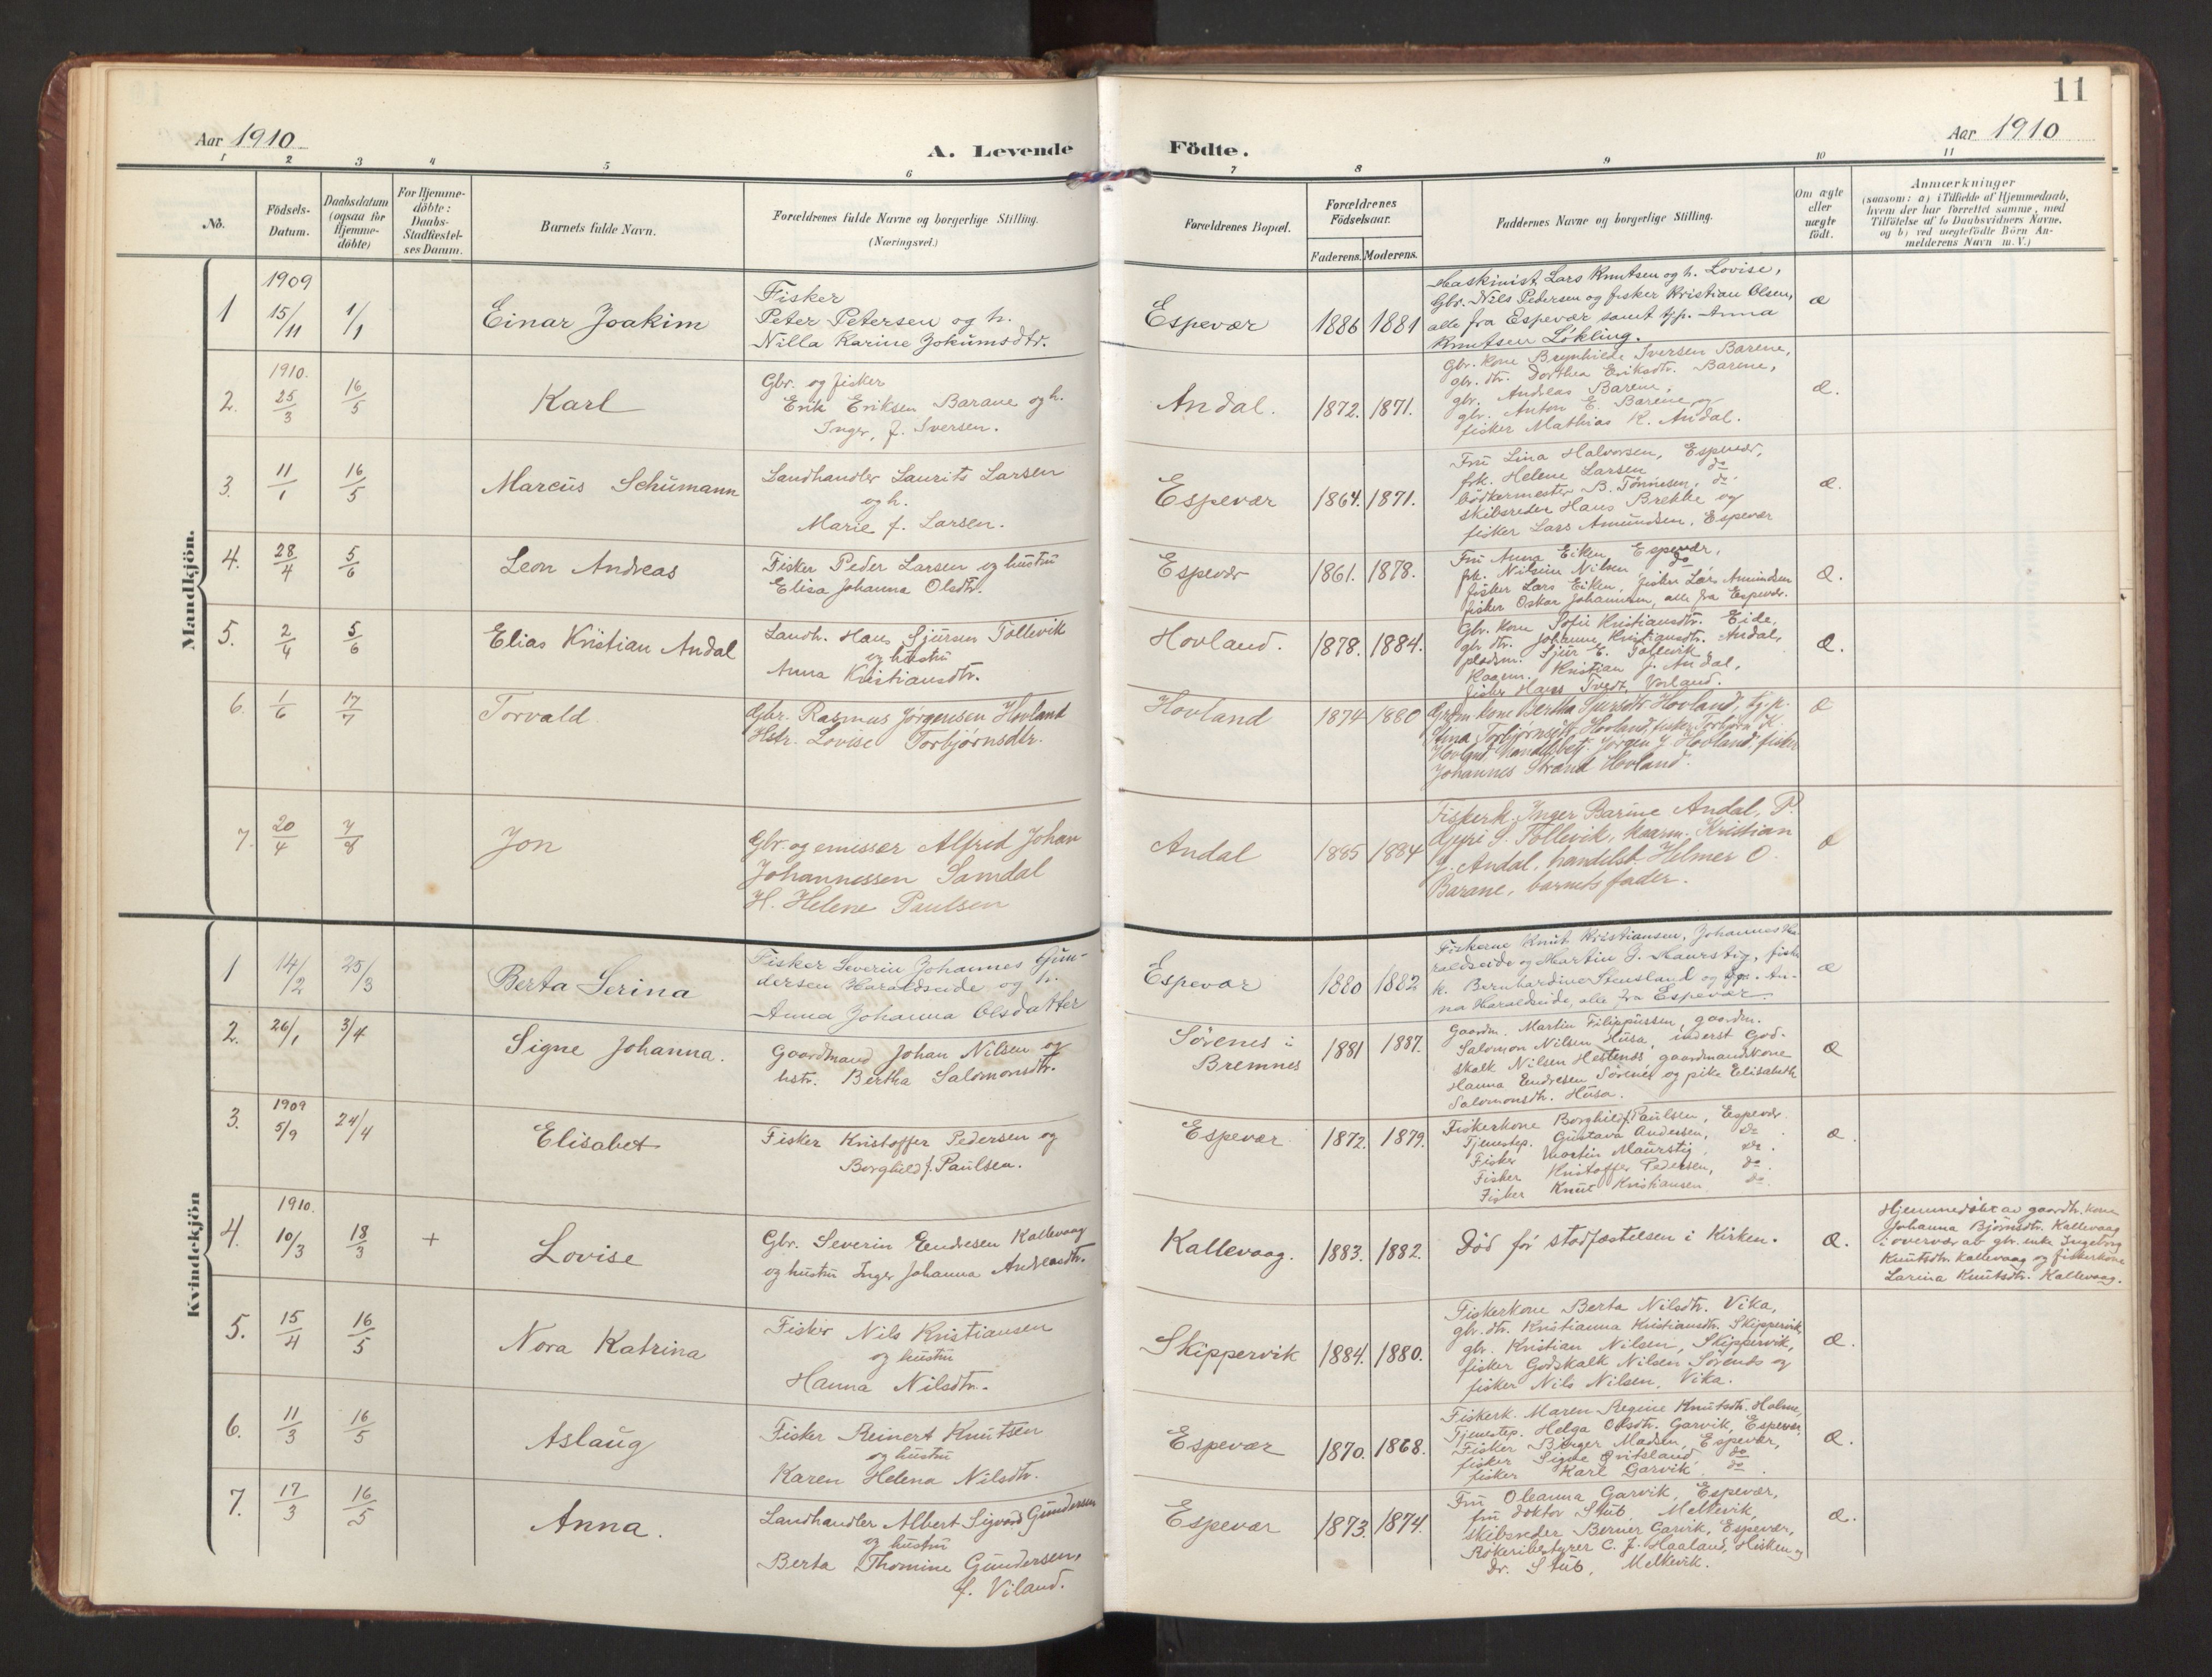 11
Aar 1910
A. Levende Födte.
Aar 1910
1 2 3 4 5 6 7 8 9 10 11
No.
Födsels-
Datum.
Daabsdatum
(ogsaa för
Hjemme-
döbte)
For Hjemme-
döbte:
Daabs-
Stadfæstel-
ses Datum.
Barnets fulde Navn.
Forældrenes fulde Navne og borgerlige Stilling.
(Næringsvei.)
Forældrenes Bopæl.
Forældrenes
Födselsaar.
Faderens. Moderens.
Faddernes Navne og borgerlige Stilling.
Om ægte
eller
uægte
födt.
Anmærkninger
(saasom: a) i Tilfælde af Hjemmedaab,
hvem der har forrettet samme, med
Tilföielse af to Daabsvidners Navne,
og b) ved uægtefödte Börn An-
melderens Navn m. V.)
Mandkjön.
1
1909
15/11
1/1
Einar Joakim
Fisker
Peter Petersen og h.
Nilla Karine Jokumsdtr.
Espevær
1886
1881
Maskinist Lars Knutsen og h. Lovise,
Gbr. Nils Pedersen og fisker Kristian Olsen,
alle fra Espevær samt tjp. Anna
Knutsen Løkling.
æ
2.
1910.
25/3
16/5
Karl
Gbr. og fisker
Erik Eriksen Barane og h.
Inger, f. Iversen.
Andal.
1872.
1871.
Gbr. kone Brynhilde Iversen Barene,
gbr. dtr. Dorthea Eriksdtr. Barene,
gbr. Andreas Barene,
gbr. Anton E. Barene og
fisker Mathias K. Andal.
æ.
3.
11/1
16/5
Marcus Schumann
Landhandler Laurits Larsen
og h.
Marie f. Larsen.
Espevær
1864.
1871.
Fru Lina Halvorsen, Espevær,
frk. Helene Larsen do
bödkermester B. Tönnesen, do.
skibsreder Hans Brekke og
fisker Lars Amundsen, Espevær
æ.
4.
28/4
5/6
Leon Andreas
Fisker Peder Larsen og hustru
Elisa Johanna Olsdtr.
Espevær
1861.
1878.
Fru Anna Eiken, Espevær,
frk. Nilsine Nilsen do
fisker Lars Eiken, fisker Lars Amundsen
fisker Oskar Johannesen, alle fra Espevær.
æ.
5.
2/4
5/6
Elias Kristian Andal
Landh. Hans Sjursen Tollevik
og hustru
Anna Kristiansdtr.
Hovland.
1878.
1884.
Gbr. kone Sofie Kristiansdtr. Eide,
gbr. dtr. Johanne Kristiansdtr. Andal,
pladsm. Sjur E. Tollevik,
Kaarm. Kristian J. Andal,
fisker Hans Tvedt, Vorland.
æ.
6.
1/6
17/7
Torvald
Gbr. Rasmus Jørgensen Hovland
Hstr. Lovise Torbjørnsdtr.
Hovland
1874
1880
Grdm. kone Bertha Sjursdtr. Hovland, tj. p.
Stina Torbjörnsdtr. Hovland, fisker Torbjörn K.
Hovland, Handelsbetj. Jørgen J. Hovland, fisker
Johannes Strand Hovland.
æ
7.
20/4
7/8
Jon
Gbr. og emissær Alfred Johan
Johannessen Samdal
H. Helene Paulsen
Andal
1885
1884
Fiskerk. Inger Barine Andal, P.
Gyri S. Tollevik, kaarm. Kristian
J. Andal, handelsb. Helmer O.
Barane, barnets fader.
æ
Kvindekjön
1
14/2
25/3
Berta Serina
Fisker Severin Johannes Gun-
dersen Haraldseide og h.
Anna Johanna Olsdatter
Espevær
1880
1882
Fiskerne Knut Kristiansen, Johannes Ha-
raldseide og Martin J. Maurstig, fisker
k. Bernhardine Stensland og tjp. An-
na Haraldseide, alle fra Espevær.
æ
2.
26/1
3/4
Signe Johanna.
Gaardmand Johan Nilsen og
hstr. Bertha Salomonsdtr.
Sörenes i
Bremnes
1881
1887.
Gaardm. Martin Filippussen, gaardm.
Salomon Nilsen Husa, inderst God-
skalk Nilsen Hestenes, gaardmandskone
Hanna Endresen Sörenes og pike Elisabeth
Salomonsdtr. Husa.
æ
3.
1909
5/9
24/4
Elisabet
Fisker Kristoffer Pedersen og
Borghild f. Paulsen.
Espevær
1872.
1879.
Fiskerkone Borghild f. Paulsen, Espevær.
Tjenestep. Gustava Andersen, do.
Fisker Martin Maurstig, do.
Fisker Kristoffer Pedersen, do.
Fisker Knut Kristiansen do.
æ.
4.
1910.
10/3
18/3
+
Lovise
Gbr. Severin Endresen Kallevaag
og hustru Inger Johanna Andreasdtr.
Kallevaag.
1883.
1882.
Död för stadfæstelsen i Kirken.
æ.
Hjemmedöbt av gaardbr. kone
Johanna Björnsdtr. Kallevaag
i overvær av gbr. enke Ingeborg
Knutsdtr. Kallevaag og fiskerkone
Larina Knutsdtr. Kallevaag.
5.
15/4
16/5
Nora Katrina
Fisker Nils Kristiansen
og hustru
Hanna Nilsdtr.
Skippervik
1884.
1880.
Fiskerkone Berta Nilsdtr. Vika,
gbr. dtr. Kristianna Kristiansdtr. Skippervik,
gbr. Kristian Nilsen, Skippervik,
fisker Godskalk Nilsen Sörenes og
fisker Nils Nilsen, Vika.
æ.
6.
11/3
16/5
Aslaug
Fisker Reinert Knutsen
og hustru
Karen Helena Nilsdtr.
Espevær
1870.
1868.
Fiskerk. Maren Regine Knutsdtr. Holme,
Tjenestep. Helga Olsdtr. Garvik, Espevær,
Fisker Birger Madsen, Espevær,
fisker Signe Qvitsland do
fisker Karl Garvik do.
æ.
7.
17/3
16/5
Anna.
Landhandler Albert Sigvard Gundersen
og hustru
Berta Thomine Gundersen,
f. Viland.
Espevær
1873.
1874.
Fru Oleanna Garvik, Espevær,
fru doktor Stub, Melkevik,
skibsreder Berner Garvik, Espevær,
Rökeribestyrer C. J. Haaland, Hisken og
Dr. Stub, Melkevik.
æ.